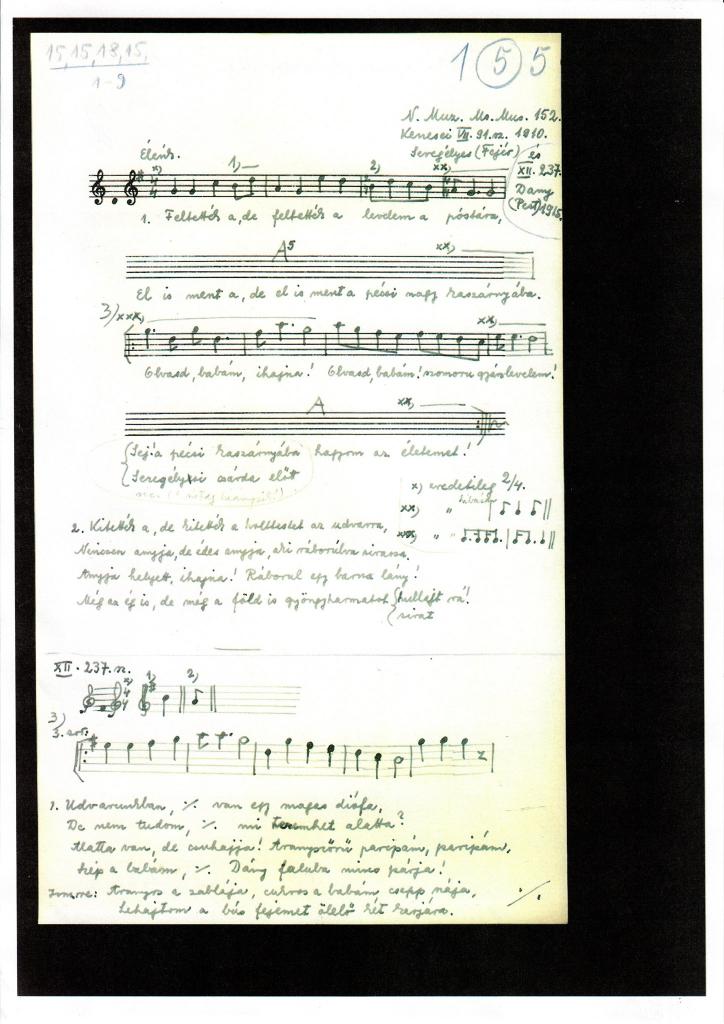 15, 15, 18, 15,
1-9
1 5 5
N. Muz. Ms. Mus. 152.
Kenesei VII. 91. sz. 1910.
Seregélyes (Fejér) és
XII. 237.
Dány
(Pest) 1915.
Élénk.
x) 1) 2) xx)
1. Feltették a, de feltették a levelem a póstára,
A5 xx)
El is ment a, de el is ment a pécsi nagy kaszárnyába.
3) xxx) xx)
Olvasd, babám, ihajna! Olvasd, babám! szomorú gyászlevelem!
A xx)
Sej! a pécsi kaszárnyába hagyom az életemet!
Seregélyesi csárda előtt
x) eredetileg 2/4.
xx) "
xxx) " "
2. Kitették a, de kitették a holttestet az udvarra,
Nincsen anyja, de édes anyja, aki ráborulva sirassa.
Anyja helyett, ihajna! Ráborul egy barna lány!
Még az ég is, de még a föld is gyöngyharmatot hullajt rá!
sirat
XII. 237. sz.
x) 4/4 1) 2)
3)
3. sor:
1. Udvarunkban, ·/· van egy magas diófa,
De nem tudom, ·/· mi teremhet alatta?
Alatta van, de csuhajja! Aranyszőrű paripám, paripám,
Szép a babám, ·/· Dány faluba nincs párja!
Aranyos a zablája, cukros a babám csepp szája,
Lehajtom a bús fejemet ölelő két karjára.
·/·